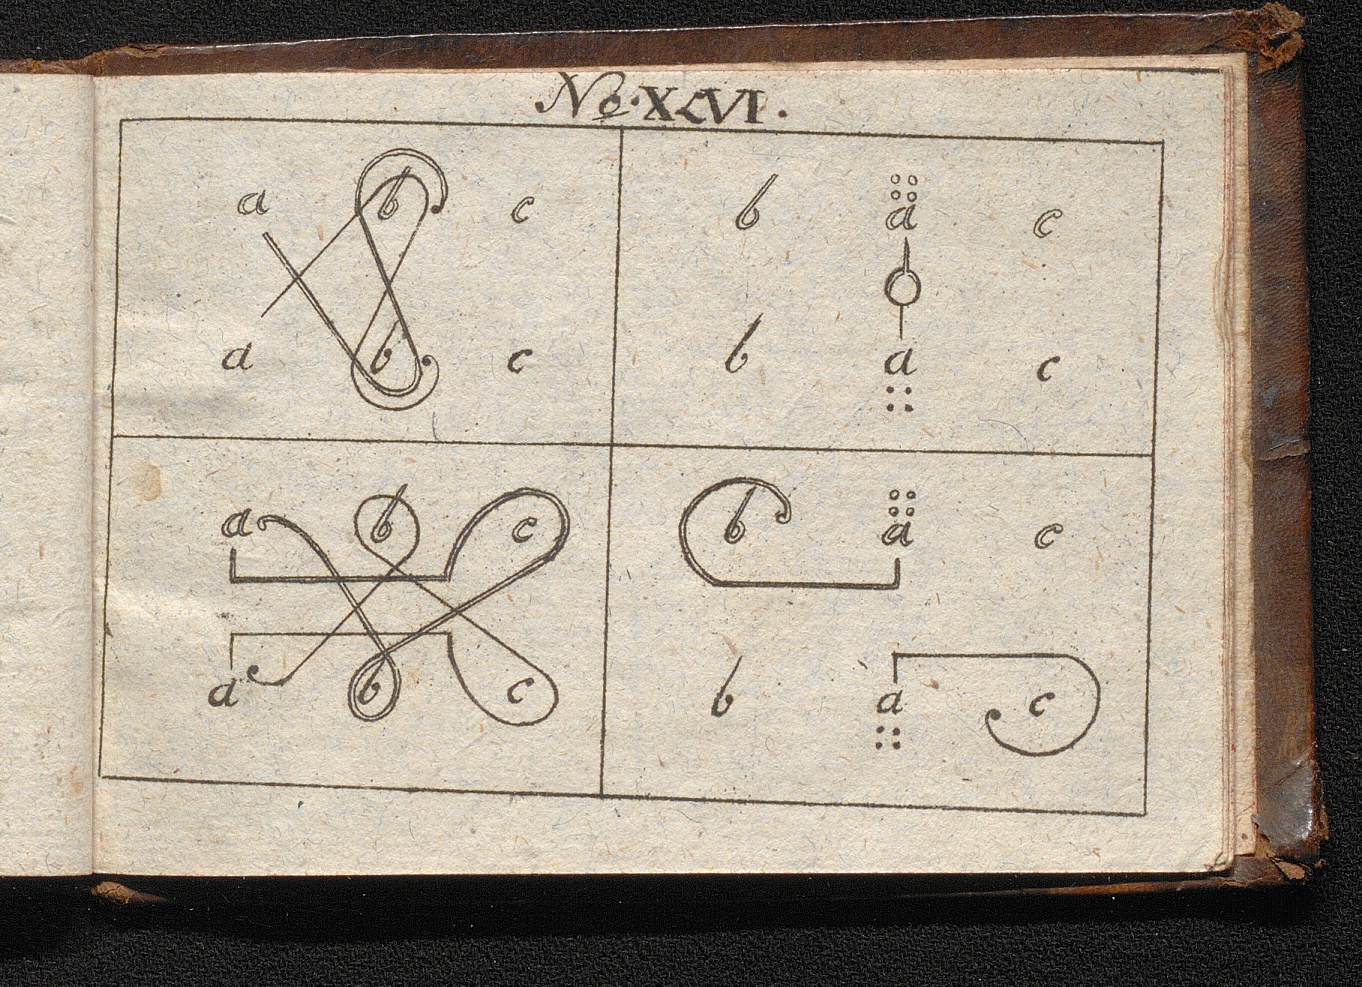 No. XLVI.
a b c
a b c
b a c
b a c
a b c
a b c
b a c
b a c